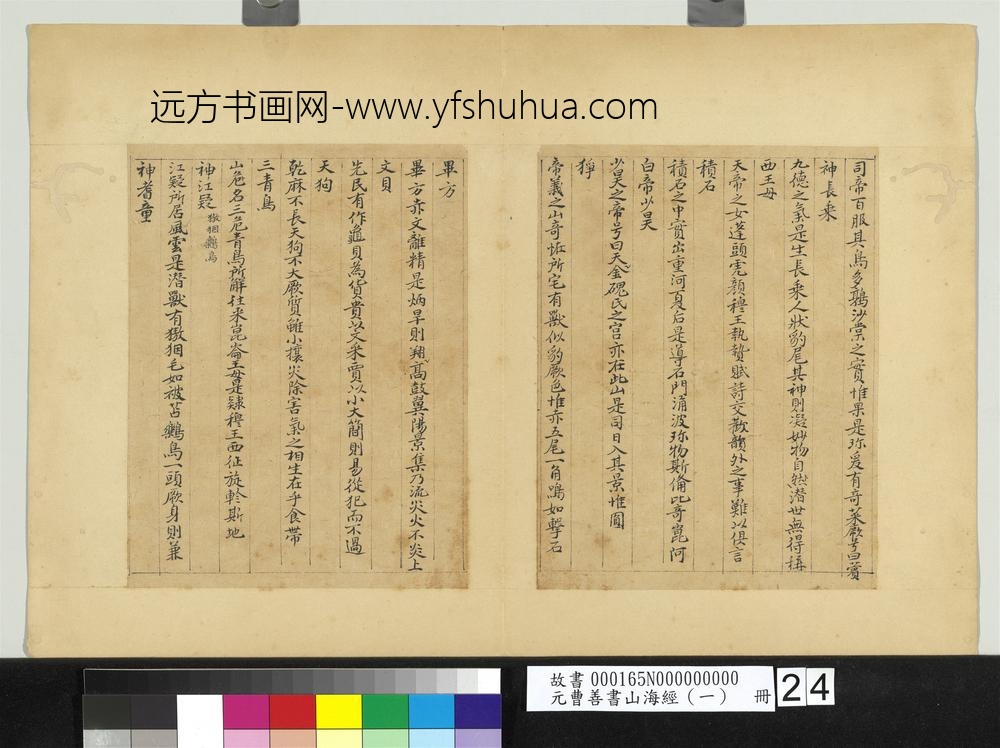 远方书画网-www.yfshuhua.com
司帝百服其鳥多鶉沙棠之實惟果是珍爰有奇菜厥号曰薲
神長乘
九德之氣是生長乘人狀豹尾其神則凝妙物自然潜世無得稱
西王母
天帝之女蓬頭虎顏穆王執贄賦詩交歡韻外之事難以俱言
積石
積石之中實出重河夏后是導石門涌波珎物斯俻比奇崑阿
白帝少昊
少昊之帝号曰天金磈氏之宫亦在此山是司日入其景惟圓
猙
帝義之山奇恠所宅有獸似豹厥色惟赤五尾一角鳴如擊石
畢方
畢方赤文離精是炳旱則翔髙鼓翼陽景集乃流灾火不炎上
文貝
先民有作龜貝為貨貴以文采賈以小大簡則易從犯而不過
天狗
乾麻不長天狗不大厥質雖小攘灾除害氣之相生在乎食帶
三青鳥
山名三危青鳥所解往来崑崙王母是隸穆王西征旋軫斯地
神江疑 獓𤝱鸝鳥
江疑所居風雲是潜獸有獓𤝱毛如被苫鸝鳥一頭厥身則兼
神耆童
故書 000165N000000000
元曹善書山海經(一) 冊
24